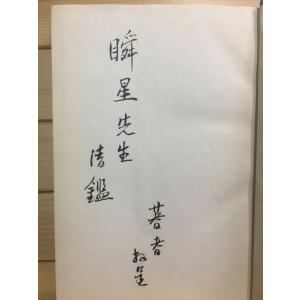 瞬星先生
清鑑
著者
敬呈